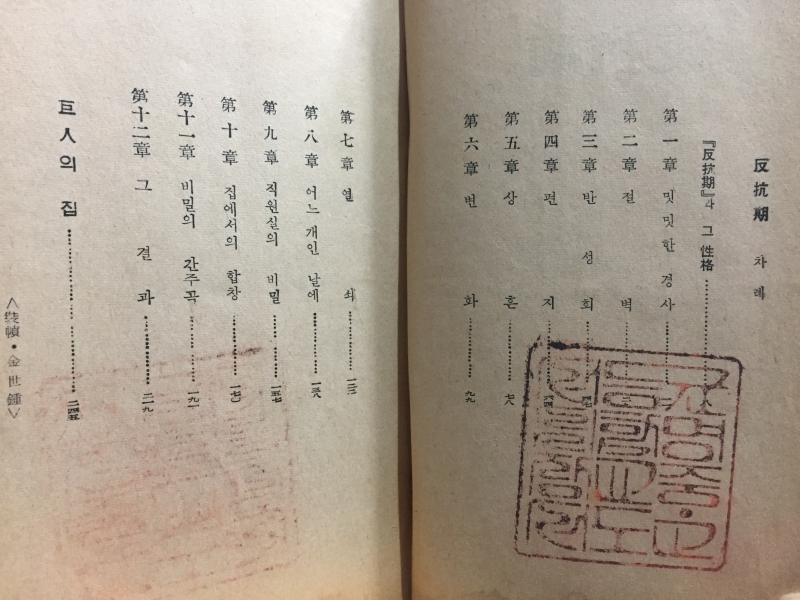 反抗期 차례
『反抗期』와 그 性格
第一章 밋밋한 경사
第二章 절벽
第三章 반성회
第四章 편지
第五章 상흔 七八
第六章 변화 九九
第七章 열쇠 一二二
第八章 어느 개인 날에 一三八
第九章 직원실의 비밀 一五七
第十章 집에서의 합창 一七〇
第十一章 비밀의 간주곡 一九一
第十二章 그 결과 二一九
巨人의 집 二四五
＜裝幀・金世鍾＞